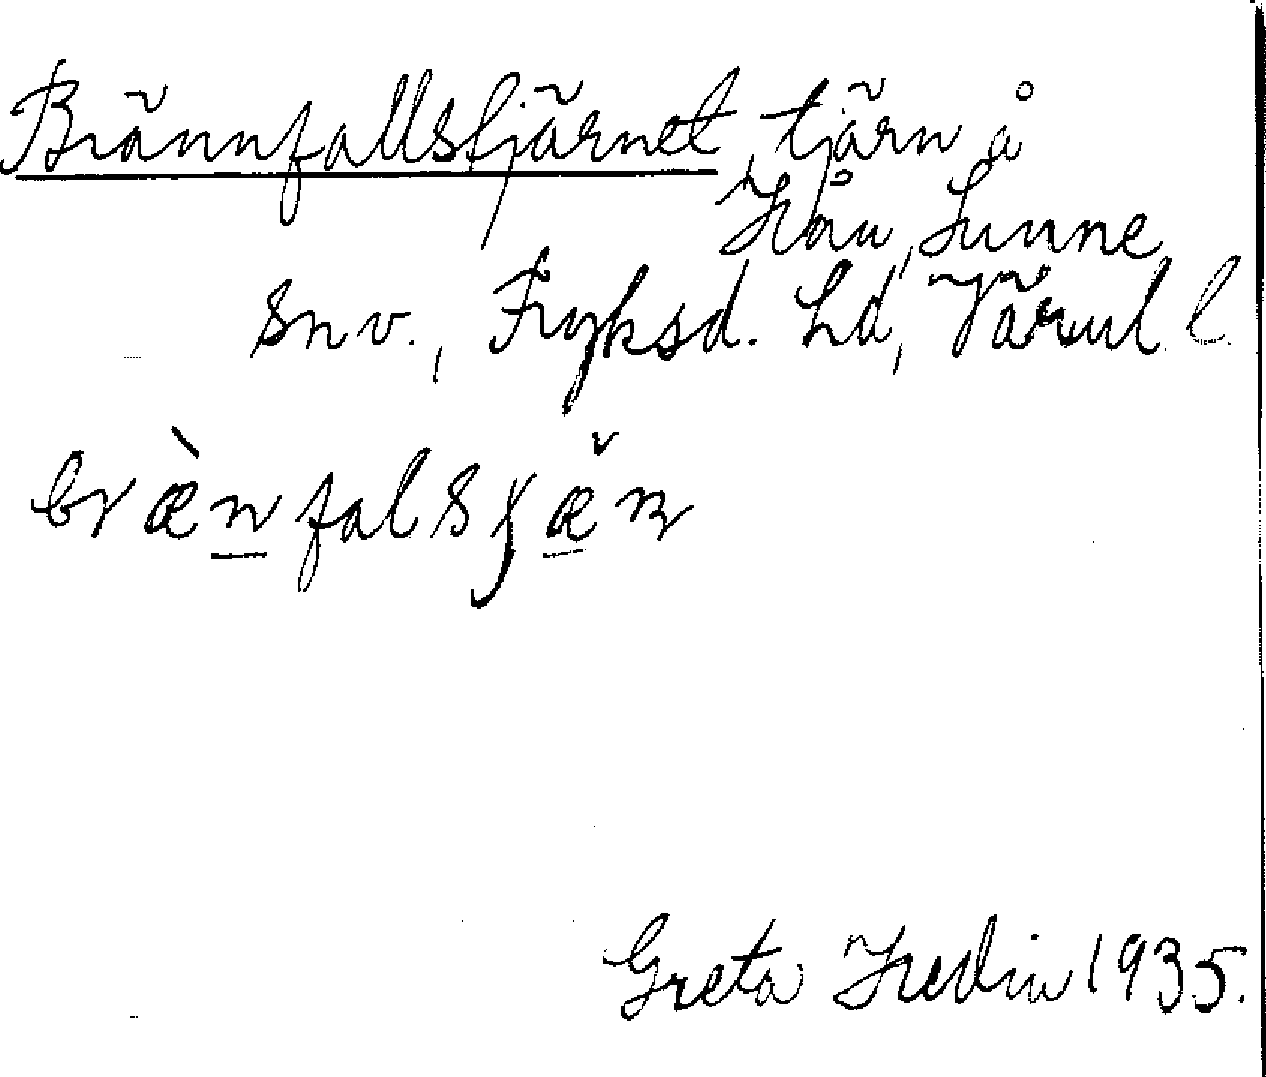 Brännfallstjärnet, tjärn å
Hån, Sunne
snv., Fryksd. hd, Värml l.
bræ̀nfalsʂæ̌n
Greta Hedin 1935.